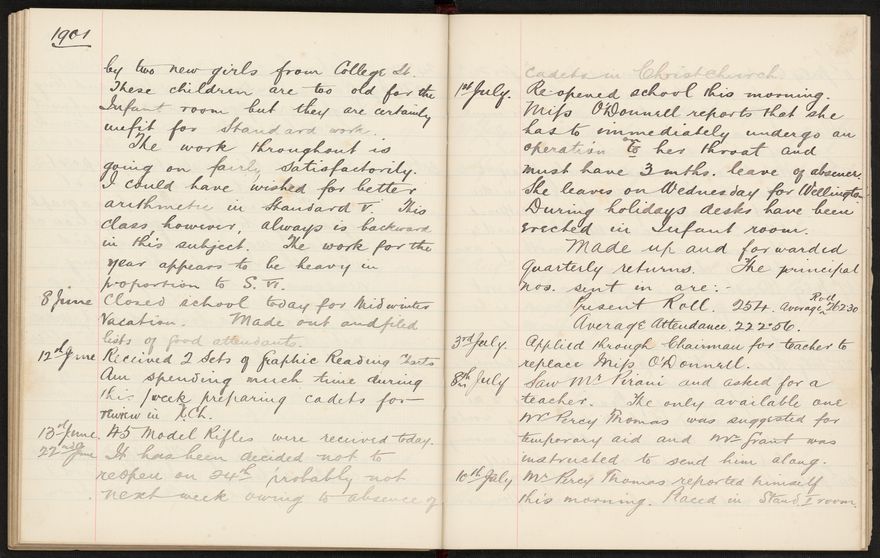 1901
by two new girls from College St.
These children are too old for the
Infant room but they are certainly
unfit for Standard work.
The work throughout is
going on fairly satisfactorily.
I could have wished for better
arithmetic in Standard V. This
class, however, always is backward
in this subject. The work for the
year appears to be heavy in
proportion to S. VI.
8 June Closed school today for Midwinter
Vacation. Made out and filed
lists of good attendants.
12th June Received 2 Sets of Graphic Reading Charts
Am spending much time during
this week preparing cadets for
review in Ch.Ch.
13th June 45 Model Rifles were received today.
22nd June It has been decided not to
reopen on 24th probably not
next week owing to absence of
cadets in Christchurch.
1st July. Re-opened school this morning.
Miss O'Donnell reports that she
has to immediately undergo an
operation to her throat and
must have 3 mths. leave of absence.
She leaves on Wednesday for Wellington.
During holidays desks have been
erected in Infant room.
Made up and forwarded
Quarterly returns. The principal
nos. sent in are:-
Present Roll. 254. Average Roll
Average Attendance. 222.56.
3rd July. Applied through Chairman for teacher to
replace Miss O'Donnell.
8th July Saw Mr Pirani and asked for a
teacher. The only available one
Mr Percy Thomas was suggested for
temporary aid and Mr Grant was
instructed to send him along.
10th July Mr Percy Thomas reported himself
this morning. Placed in Stand. I room.